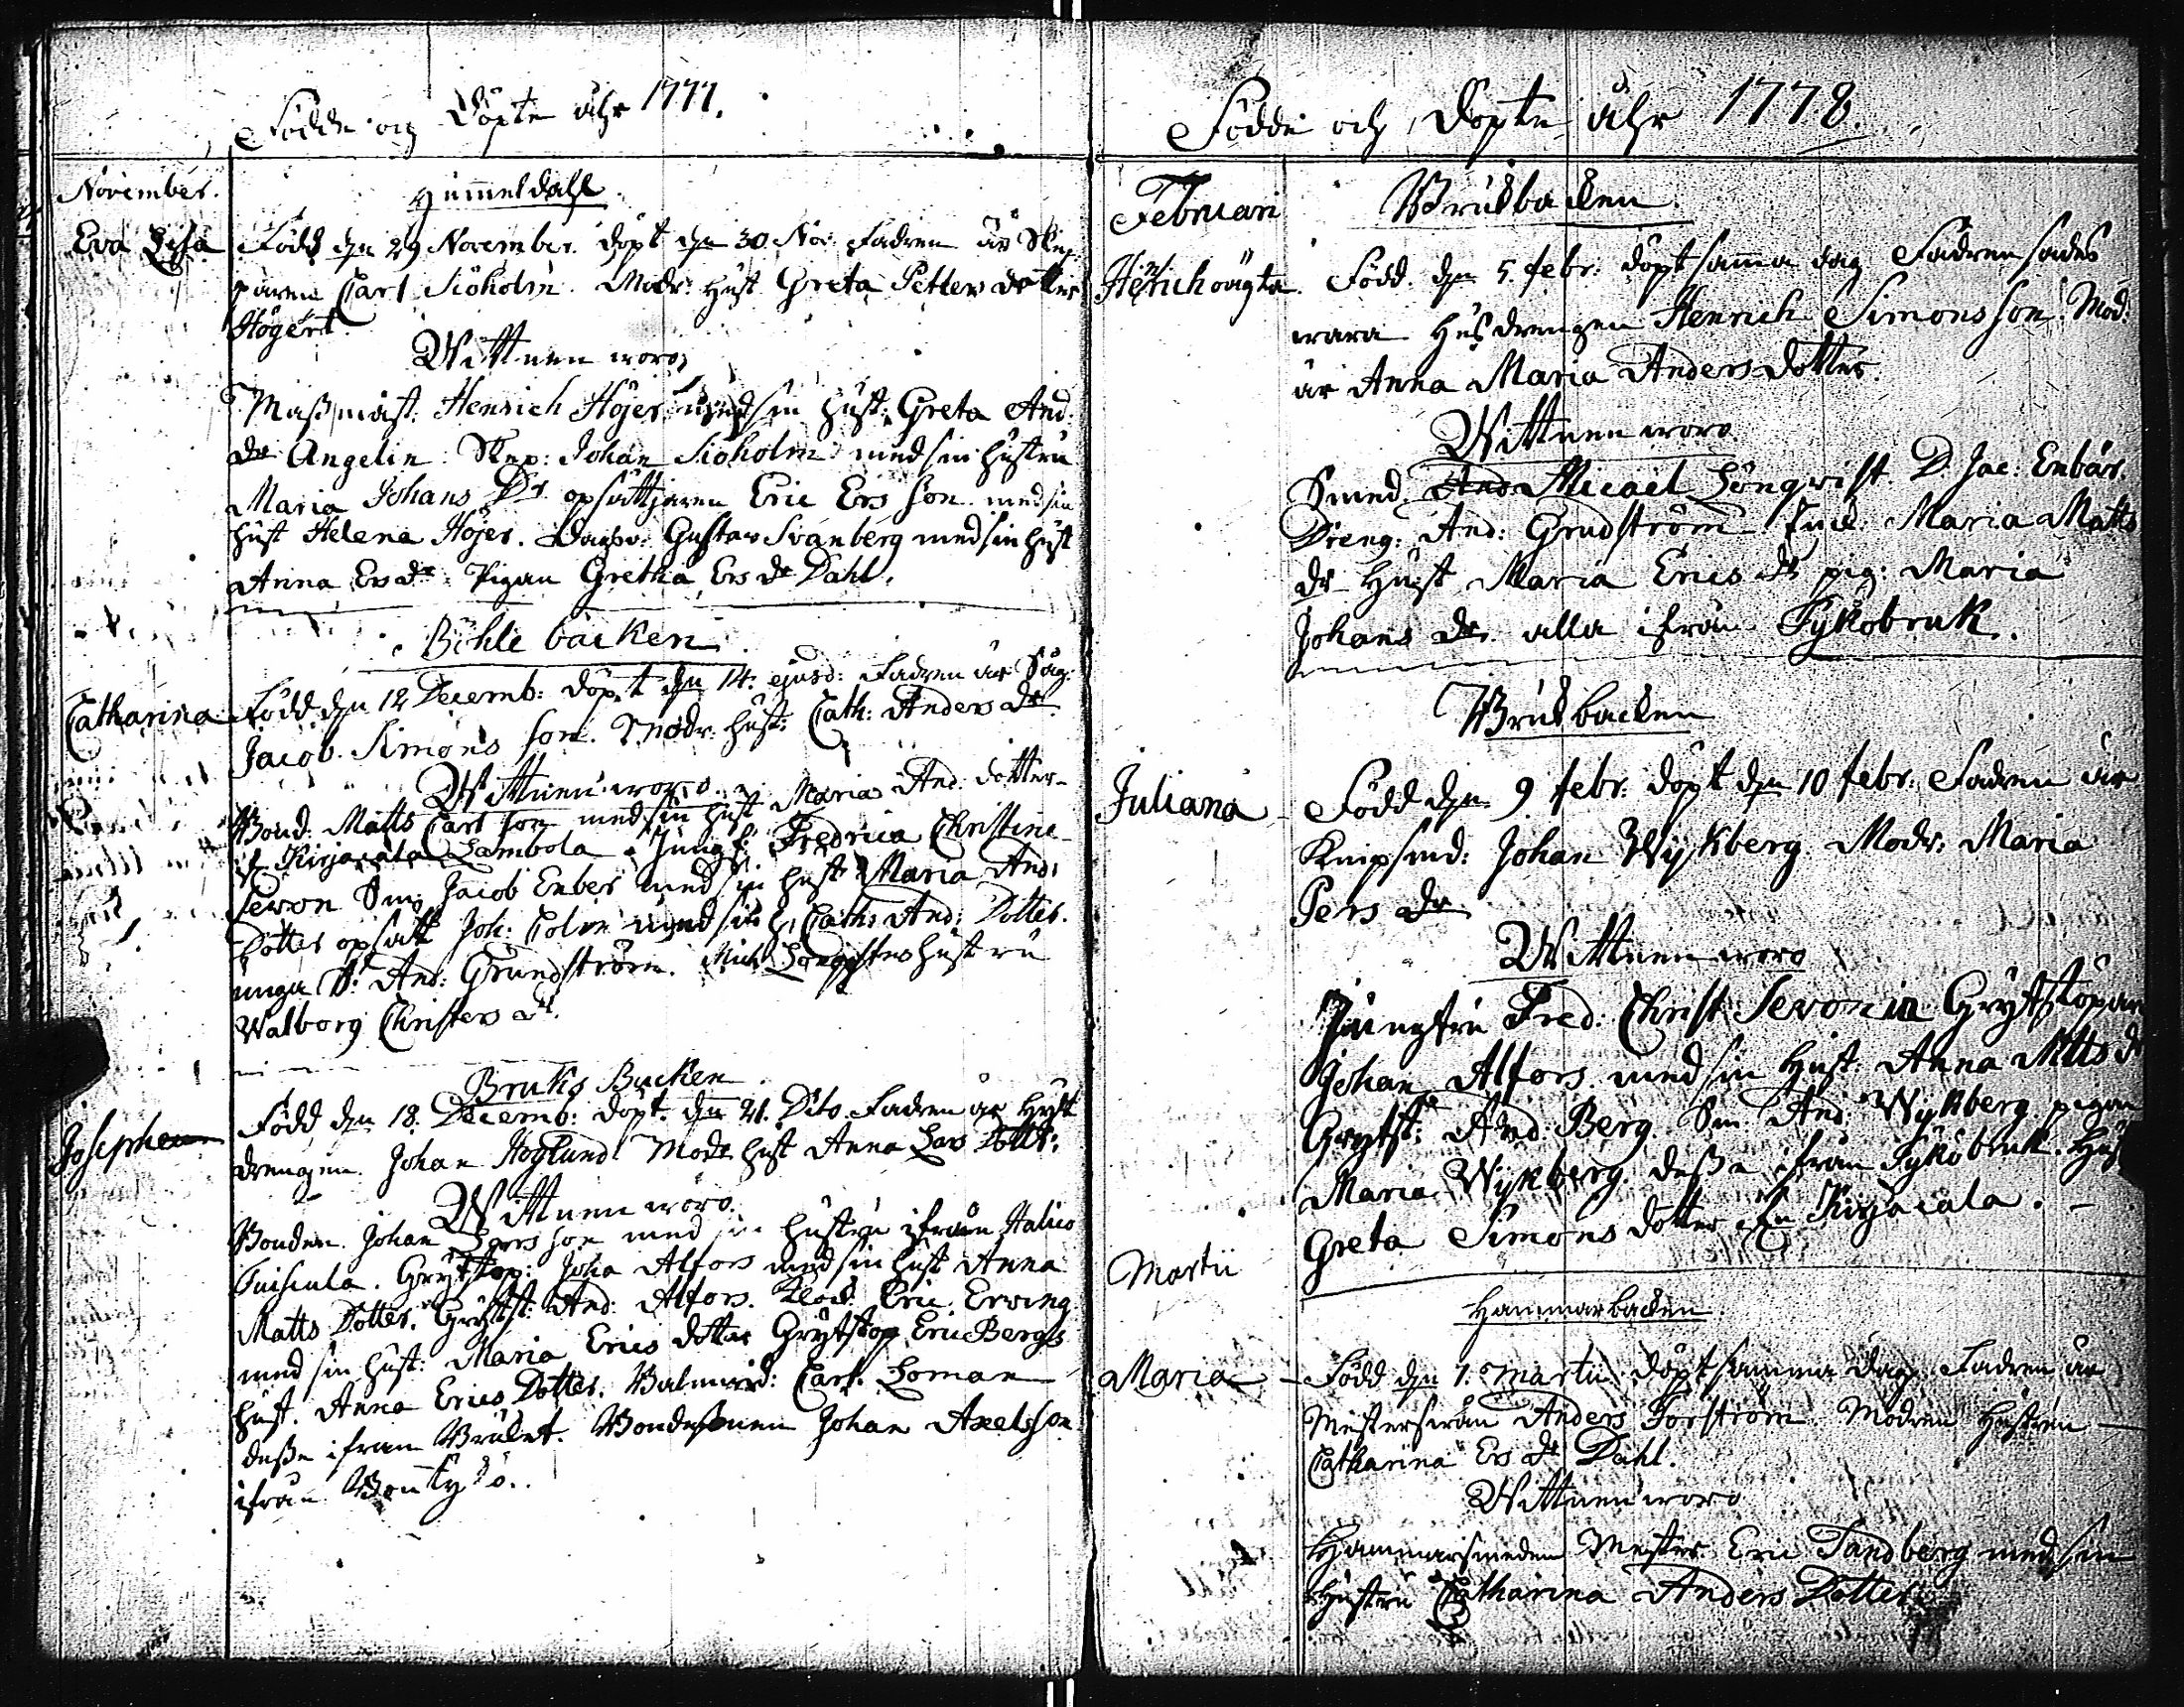 Födde och Döpte åhr 1777.
November.
Hummeldahl
Eva Lisa
Född den 29 November. döpt den 30 Nov. Fadren är Skep
paren Carl Siöholm. Modr: Hust Greta Petters dotter
Högert
Wittnen woro
Masmäst. Henrich Höjer med sin hust: Greta And.
dr Angelin. Skep: Johan Siöholm med sin hustru
Maria Johans Dr. opsättjaren Eric Ers son med sin
hust Helena Höjer. Gustav Svanberg med sin hust
Anna Ers dr. Pigan Gretha Ers dr Dahl.
Böhle backen
Catharina
Född den 12 Decemb: döpt den 14. ejusd: Fadren är Såg:
Jacob Simons son. Modr: hust: Cath: Anders dr
Wittnen woro
Bond. Matts Carl son med sin hust Maria And. dotter
if Kirjacala Lambola. Jungf: Fredrica Christine
Sevon Smed Jacob Enber med sin hust Maria And:
Dotter opsätt Joh: Colin med sin h. Cath: And: Dotter.
unga D: And: Grundström. Mich hustru
Walborg Christers dr.
Bruks Backen
Josephe
Född den 18. Decemb: döpt. den 21. Dito Fadren är
drengen Johan Höglund Modr hust Anna Lars Dottr:
Wittnen woro.
Bonden Johan Lars son med sin hustru ifrån Halico
Grytstöp: Joha Alfors med sin hust Anna
Matts Dotter. Grytst: And: Alfors. Eric Erving
med sin hust: Maria Erics dotter Grytstöp Eric Bergs
hust. Anna Erics Dotter. Carl Loman
desse ifrån Bruket. Bondesonen Johan Axelsson
ifrån
Födde och Döpte åhr 1778.
Februari
Bruksbacken
Henich oägta
Född den 5 febr: döpt samma dag Fadren sades
wara Husdrengen Henrich Simonsson. Mod:
är Anna Maria Anders dotter.
Wittnen woro
Smed. And Micael Löngwist D. Jac: Enbär.
Dreng: And: Grudström. Maria Matts
dr Hust Maria Erics dr pig: Maria
Johans dr. alla ifrån Tykobruk.
Bruksbacken
Juliana
Född den 9 febr: döpt den 10 febr: Fadren är
Knipsmd: Johan Wykberg. Modr: Maria
Pers dr
Wittnen woro
Jungfru Fred: Christ Sevonia Grytstöpar
Johan Alfors med sin hust: Anna Matts dr
Grytst: And: Berg. Sm: And: Wykberg pigan
Maria Wykberg. desse ifrån Tykobruk. Hust
Greta Simons dotter ifrån Kirjacala.
Martii
Hammarbacken
Maria
Född den 1. Martii. döpt samma dag. Fadren är
Mestersven Anders Forström. Modren Hustrun
Catharina Ers dr Dahl.
Wittnen woro
Hammarsmeden Mester Eric Sandberg med sin
Hustru Catharina Anders Dotter